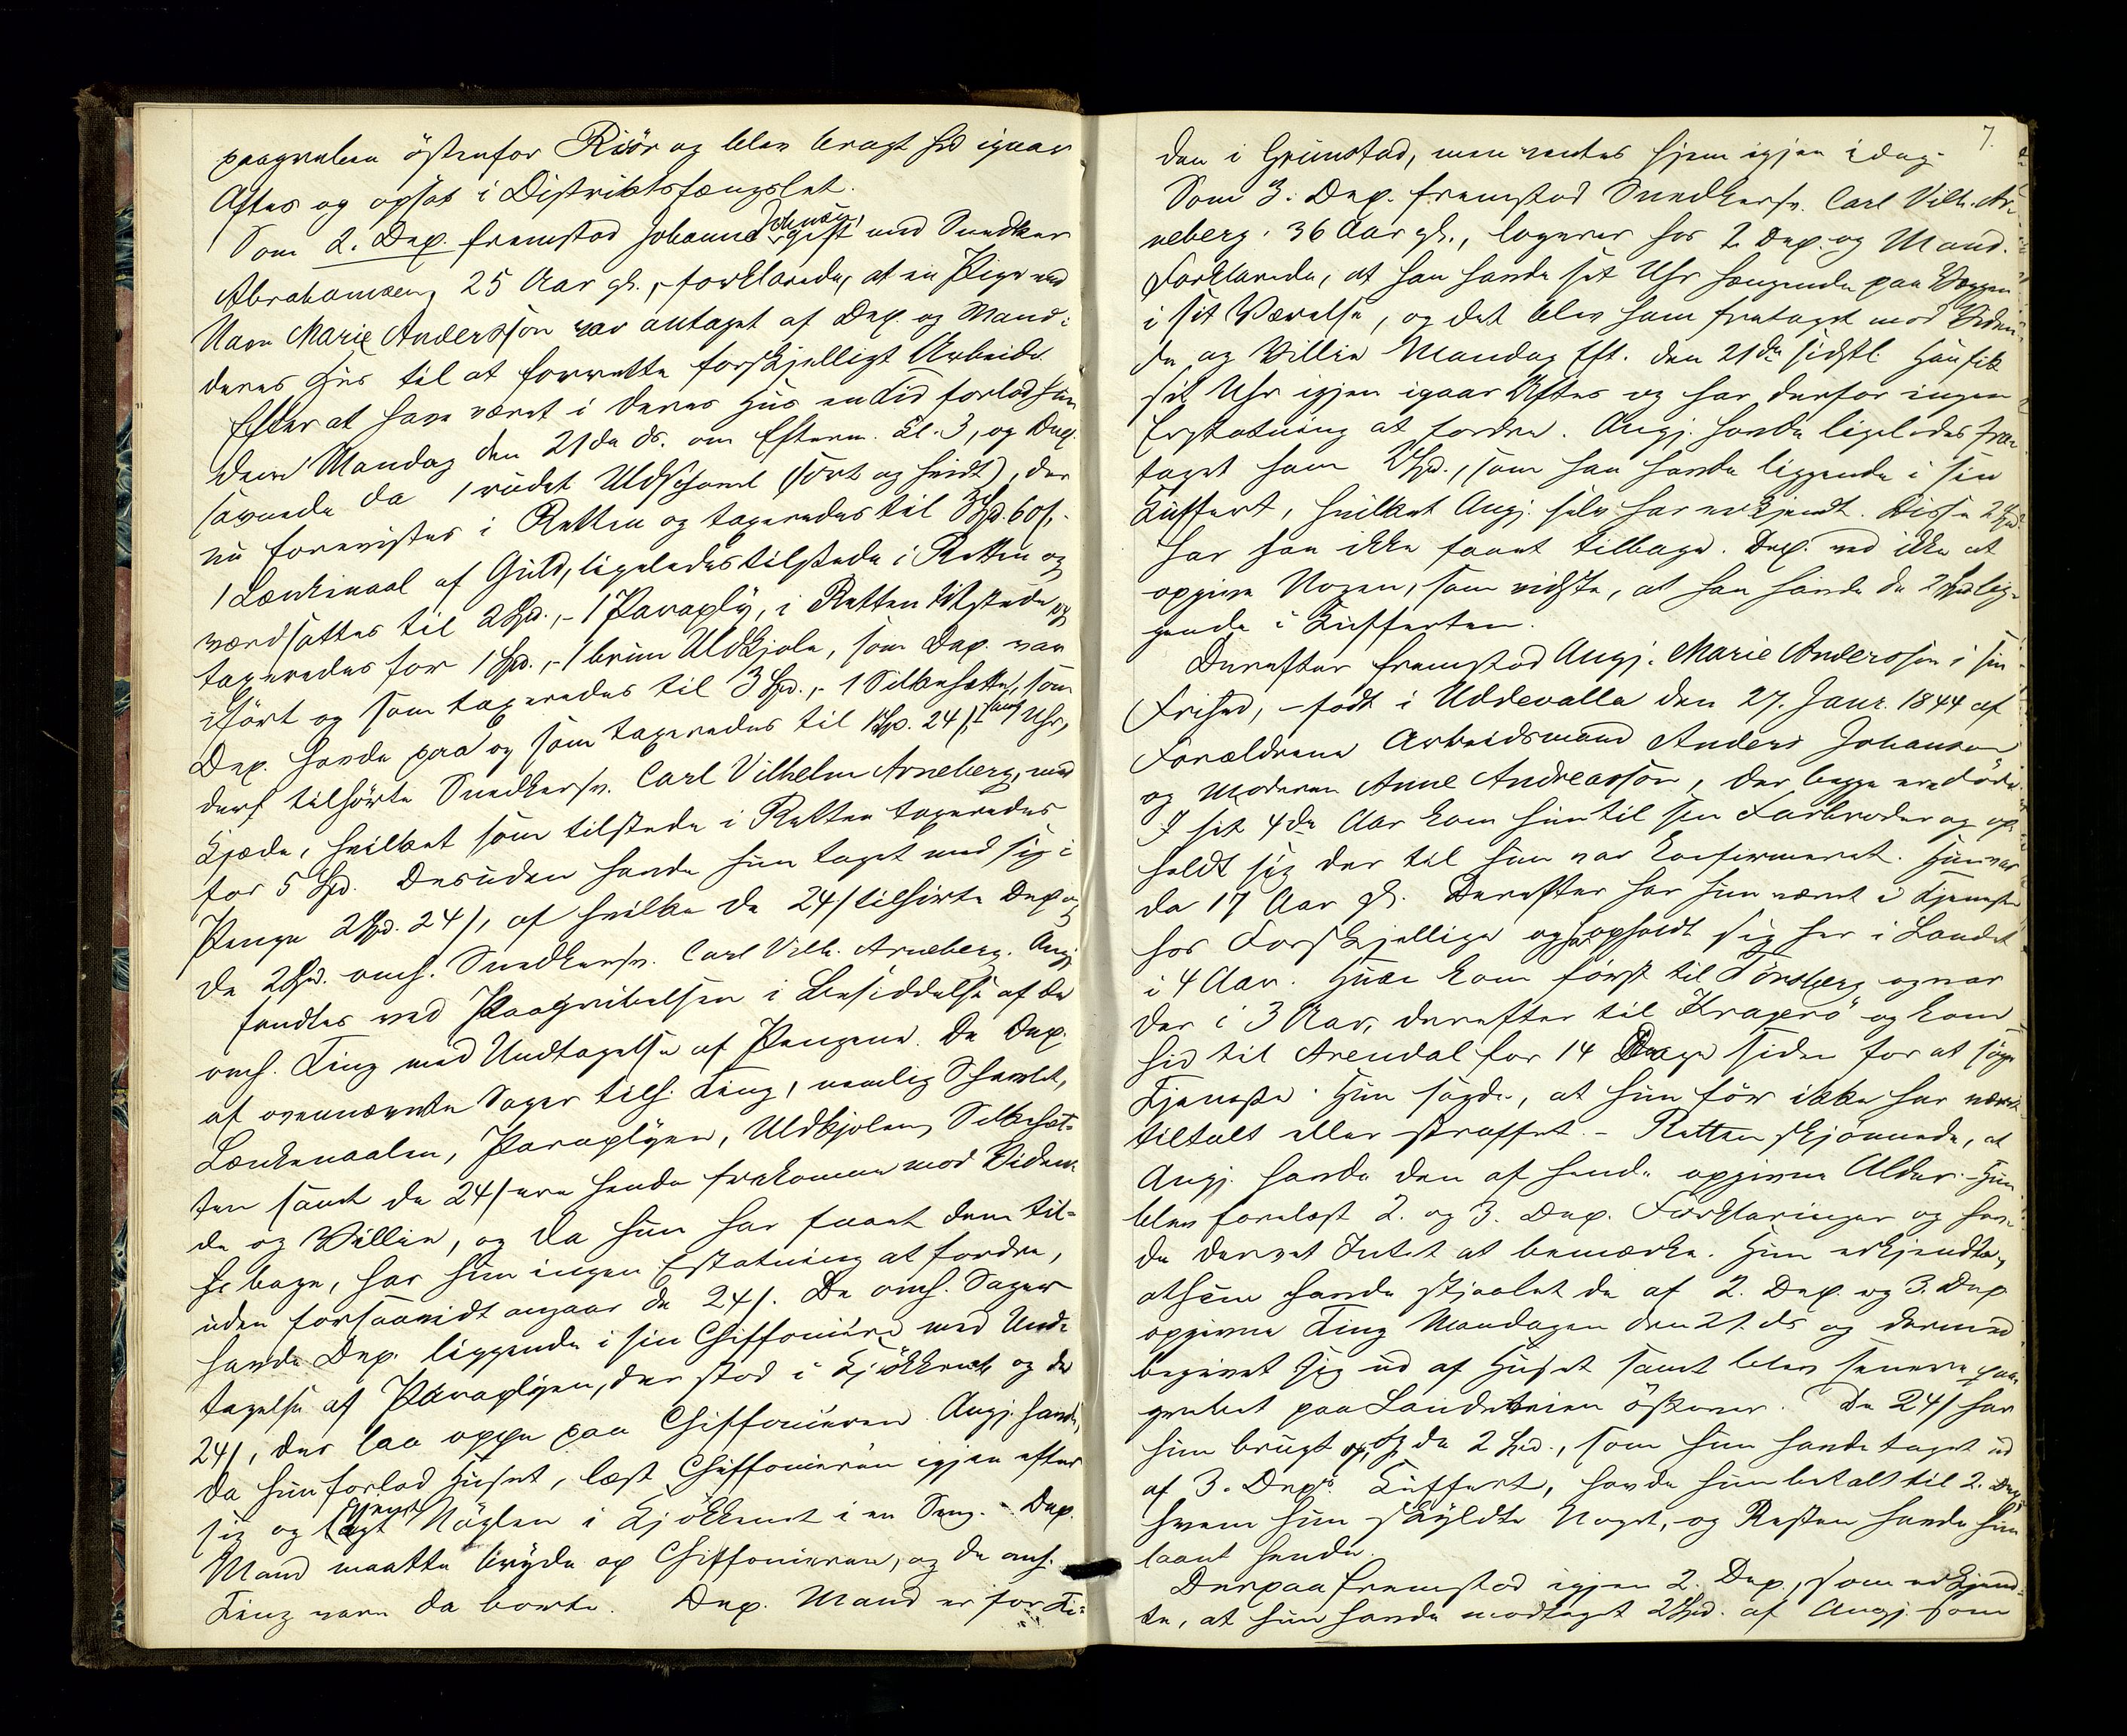 paagreben östenfor Risör og blev bragt hid igaar
Aftes og opsat i Distriktsfængslet.
Som 2. Dep. fremstod Johanne Johnsen, gift med Snedker
Abrahamsen, 25 Aar gl., forklarede, at en Pige ved
Navn Marie Andersson var antaget af Dep. og Mand i
deres Hus til at forrette forskjelligt Arbeide.
Efter at have været i deres Hus en Tid forlod hun
dem Mandag den 21de ds. om Efterm. Kl. 3, og Dep.
savnede da 1 rudet Uldschawl (sort og hvidt), der
nu forevistes i Retten og taxeredes til 3 Spd. 60 s,
1 Lænkenaal af Guld, ligeledes tilstede i Retten og
værdsattes til 2 Spd., - 1 Paraply, i Retten tilstede og
taxeredes for 1 Spd., - 1 brun Uldkjole, som Dep. var
iført og som taxeredes til 3 Spd., - 1 Silkehætte, som
Dep. havde paa og som taxeredes til 1 Spd. 24 s, 1 Uhr,
der tilhørte Snedkersv. Carl Vilhelm Arneberg, med
Kjæde, hvilket som tilstede i Retten taxeredes
for 5 Spd. Desuden havde hun taget med sig i
Penge 2 Spd. 24 s, af hvilke de 24 s tilhørte Dep. og
de 2 Spd. omh. Snedkersv. Carl Vilh. Arneberg. Angj.
fandtes ved Paagribelsen i Besiddelse af de
omh. Ting med Undtagelse af Pengene. De Dep.
af ovennævnte Sager tilh. Ting, nemlig Schawlet,
Lænkenaalen, Paraplyen, Uldkjolen, Silkehæt-
ten samt de 24 s ere hende frakomne mod Viden-
de og Villie, og da hun har faaet dem til-
bage, har hun ingen Erstatning at fordre,
uden forsaavidt angaar de 24 s. De omh. Sager
havde Dep. liggende i sin Chiffoniere med Und-
tagelse af Paraplyen, der stod i Kjökkenet og de
24 s, der laa oppe paa Chiffonieren. Angj. havde,
da hun forlod Huset, læst Chiffonieren igjen efter
sig og lagt Nöglen i Kjökkenet i en Seng. - Dep.
Mand maatte bryde op Chiffonieren, og de omh.
Ting vare da borte. Dep. Mand er for Ti-
7.
den i Grimstad, men ventes hjem igjen idag.
Som 3. Dep. fremstod Snedkersv. Carl Vilh. Ar-
neberg, 36 Aar gl., logerer hos 2. Dep. og Mand.
Forklarede, at han havde sit Uhr hængende paa Væggen
i sit Værelse, og det blev ham frataget mod Viden-
de og Villie Mandag Eft. den 21de sidstl. Han fik
sit Uhr igjen igaar Aftes og har derfor ingen
Erstatning at fordre. Angj. havde ligeledes fra-
taget ham 2 Spd., som han havde liggende i sin
Kuffert, hvilket Angj. selv har erkjendt. Disse 2 Spd.
har han ikke faaet tilbage. Dep. ved ikke at
opgive Nogen, som vidste, at han havde de 2 Spd. lig-
gende i Kufferten.
Derefter fremstod Angj. Marie Andersson i sin
Frihed, - født i Uddevalla den 27. Janr. 1844 af
Forældrene Arbeidsmand Anders Johanson
og Moderen Anne Andreasson, der begge ere döde.
I sit 4de Aar kom hun til sin Farbroder og op-
holdt sig der til hun var konfirmeret. Hun var
da 17 Aar gl. Derefter har hun været i Tjeneste
hos Forskjellige og har opholdt sig her i Landet
i 4 Aar. Hun kom först til Tönsberg og var
der i 3 Aar, derefter til Kragerö og kom
hid til Arendal for 14 Dage siden for at söge
Tjeneste. Hun sagde, at hun för ikke har været
tiltalt eller straffet. - Retten skjönnede, at
Angj. havde den af hende opgivne Alder. - Hun
blev forelæst 2. og 3. Dep. Forklaringer og hav-
de dervet Intet at bemærke. Hun erkjendte,
at hun havde stjaalet de af 2. Dep. og 3. Dep
opgivne Ting Mandagen den 21. ds og dermed
begivet sig ud af Huset samt blev senere paa-
grebet paa Landeveien östover. De 24 s har
hun brugt op, og de 2 Spd., som hun havde taget ud
af 3. Deps Kuffert, havde hun betalt til 2. Dep.,
hvem hun skyldte Noget, og Resten havde hun
laant hende.
Derpaa fremstod igjen 2. Dep., som erkjend-
te, at hun havde modtaget 2 Spd. af Angj. som